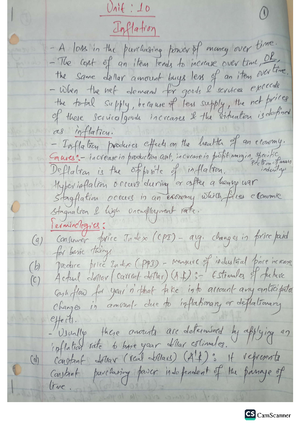 Unit: 10
1
Inflation
- A loss in the purchasing power of money over time
- The cost of an item tends to increase over time, OR,
the same dollar amount buys less of an item over time
- When the net demand for goods & services exceeds
the total supply, because of less supply, the net prices
of these services/goods increases & the situation is defined
as inflation.
- Inflation produces effects on the health of an economy.
Causes:- Increase in production cost, increase in
Deflation is the opposite of inflation.
Hyperinflation occurs during or after a heavy war
Stagflation occurs in an economy which faces economic
stagnation & high unemployment rate.
Terminologies:
(a) Consumer Price Index (CPI) - avg. changes in price paid
for basic things
(b) Producer Price Index (PPI) - Measures of industrial price
(c) Actual dollar (current dollar) (A$):- Estimates of future
cashflow for year n that take into account any anticipated
changes in amount due to inflationary or deflationary
effects.
- Usually these amounts are determined by applying an
inflation rate to base year dollar estimates.
(d) Constant dollar (real dollars) (A'$): It represents
constant purchasing power independent of the passage of
time.
CS CamScanner